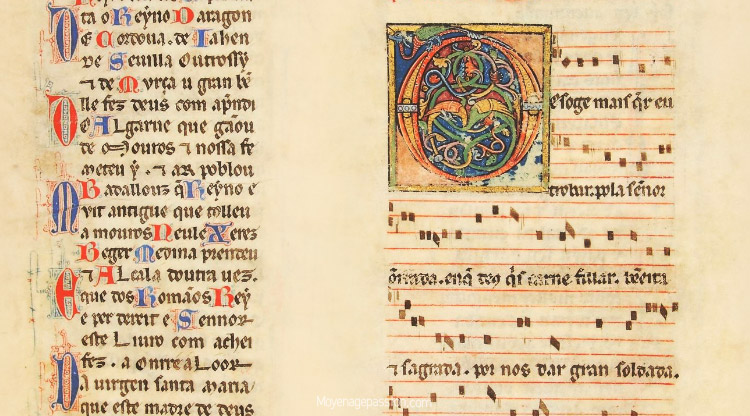 ta o Reyno Daragon
De Cordoua. de Iahen
De Seuilla Outrossy
⁊ de Murça u gran bẽ
lle fez deus com apndi
Do Algarue que gãou
de Mouros ⁊ nossa fe
meteu y. ⁊ ar poblou
Badallouz q̃ Reyno e
Muit antigue que tolleu
a mouros Neule Xerez
Beger Medina prendeu
⁊ Alcala doutra uez.
E que dos Romãos Rey
e per dereit e Sennor
este Liuro com achei
fez. a Onrra e a Loor
Da uirgen santa maria
que este madre de deus
Des oge mais q̃r eu
trobar. pola señor
õrrada. enq̃ deus q̃s carne fillar. bẽeita
⁊ sagrada. por nos dar gran soldada.
Moyenagepassion.com